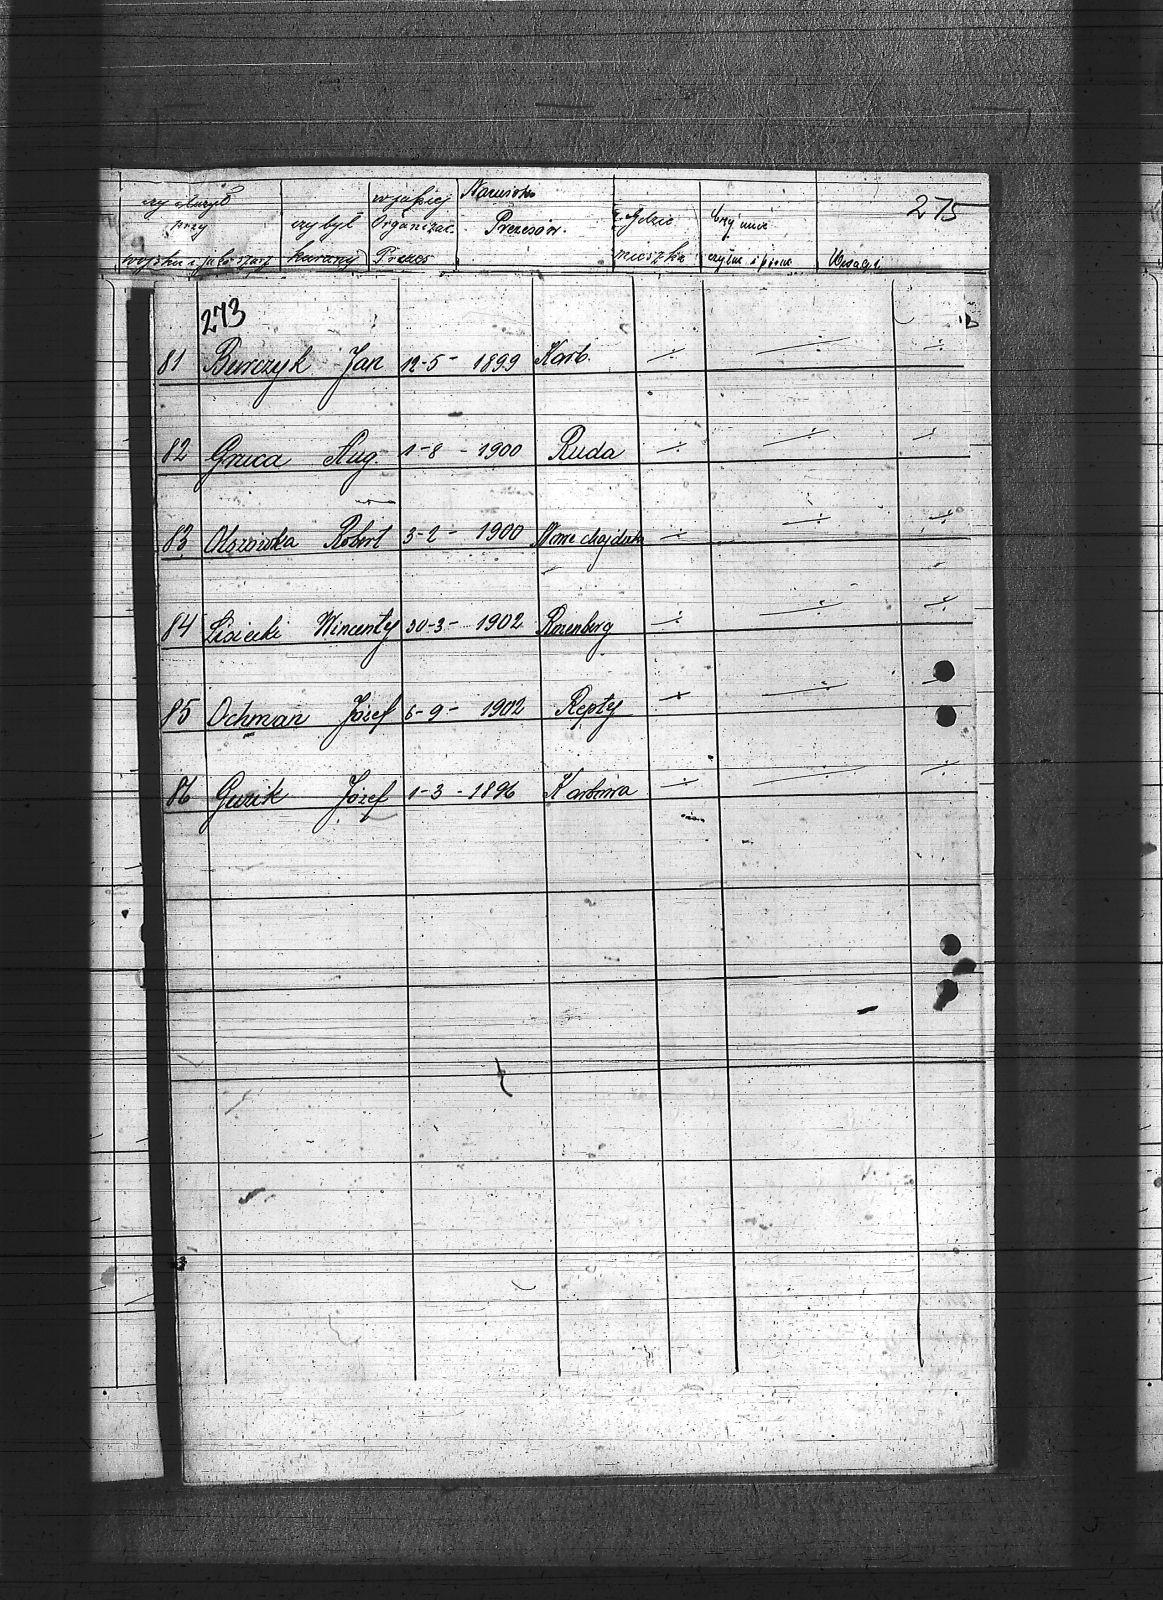 275
czy służył przy wojsku i jako starz
czy był karany
w jakiej Organizac. Prezes
Nazwisko Prezesów.
Gdzie mieszka
Czy umi czytac i pisac
Uwagi
273
81 Burczyk Jan 12-5- 1899 Karb. -:- -:- -:-
82 Gruca Aug. 1-8 - 1900 Ruda -:- -:- -:-
83 Olszowka Robert 3-2- 1900 -:- -:- -:-
84 Lisiecki Wincenty 30-3- 1902 Rosenberg -:- -:- -:-
85 Ochman Józef 6-9- 1902 Repty -:- -:-
86 Guzik Józef 1-3- 1896 -:- -:- -:-